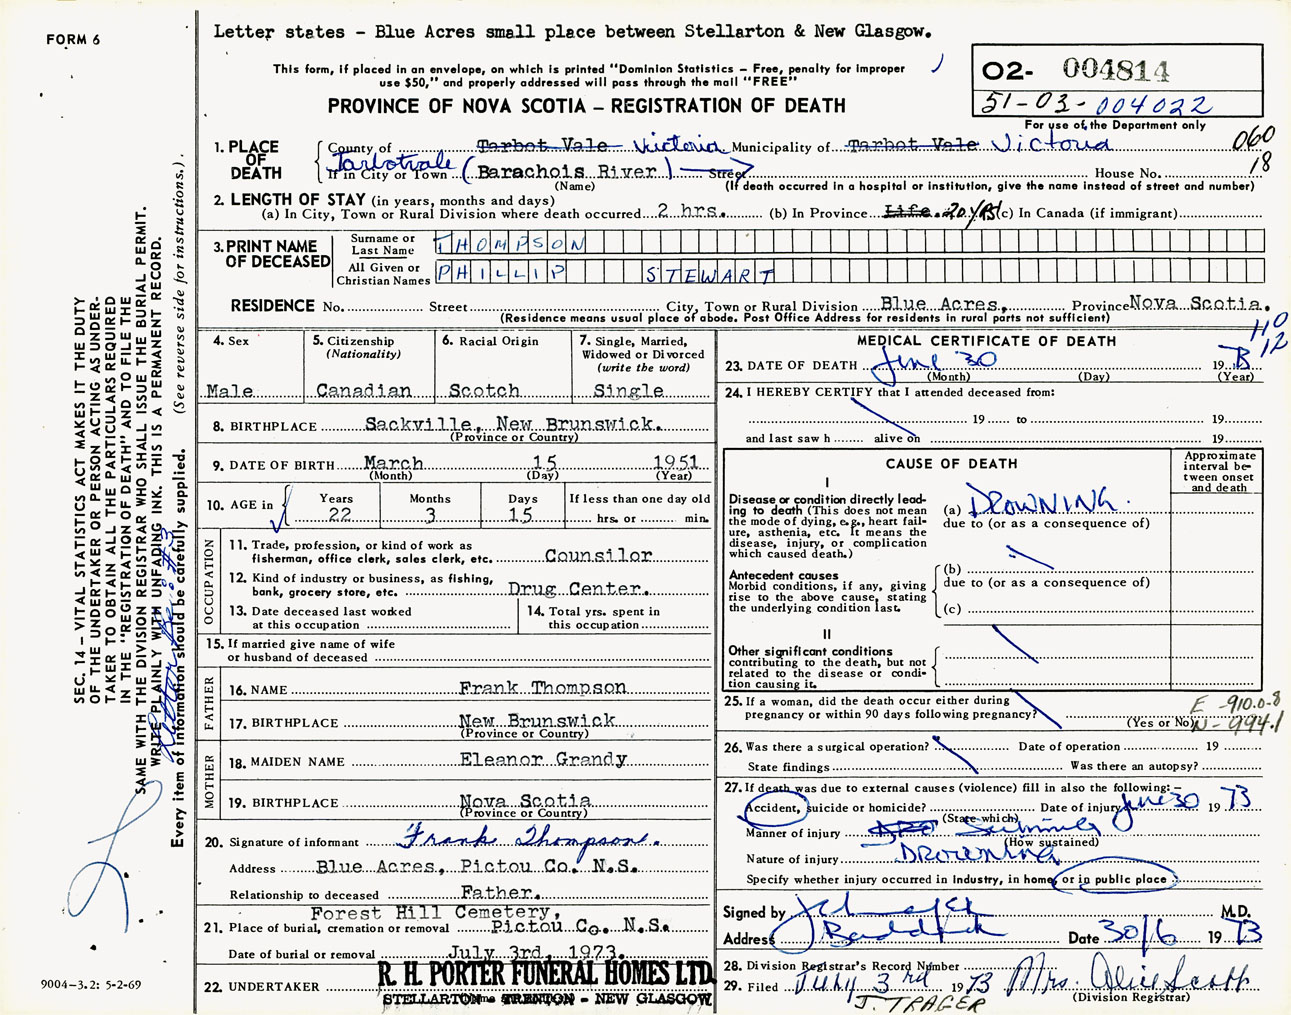 FORM 6
Letter states - Blue Acres small place between Stellarton & New Glasgow.
This form, if placed in an envelope, on which is printed "Dominion Statistics – Free, penalty for improper
use $50," and properly addressed will pass through the mail "FREE"
PROVINCE OF NOVA SCOTIA – REGISTRATION OF DEATH
02- 004814
51-03-004022
For use of the Department only
060
18
1. PLACE OF DEATH
County of Tarbot Vale Victoria Municipality of Tarbot Vale Victoria
If in City or Town Tarbotvale (Barachois River) Street House No.
(Name) (If death occurred in a hospital or institution, give the name instead of street and number)
2. LENGTH OF STAY (in years, months and days)
(a) In City, Town or Rural Division where death occurred 2 hrs. (b) In Province Life. 20 yrs (c) In Canada (if immigrant)
3. PRINT NAME OF DECEASED
Surname or Last Name THOMPSON
All Given or Christian Names PHILLIP STEWART
RESIDENCE No. Street City, Town or Rural Division Blue Acres, Province Nova Scotia.
(Residence means usual place of abode. Post Office Address for residents in rural parts not sufficient)
110
12
4. Sex
Male
5. Citizenship
(Nationality)
Canadian
6. Racial Origin
Scotch
7. Single, Married,
Widowed or Divorced
(write the word)
Single
8. BIRTHPLACE Sackville, New Brunswick.
(Province or Country)
9. DATE OF BIRTH March 15 1951
(Month) (Day) (Year)
10. AGE in
Years Months Days If less than one day old
22 3 15 hrs. or min.
OCCUPATION
11. Trade, profession, or kind of work as
fisherman, office clerk, sales clerk, etc. Counsilor
12. Kind of industry or business, as fishing,
bank, grocery store, etc. Drug Center.
13. Date deceased last worked
at this occupation
14. Total yrs. spent in
this occupation
15. If married give name of wife
or husband of deceased
FATHER
16. NAME Frank Thompson
17. BIRTHPLACE New Brunswick
(Province or Country)
MOTHER
18. MAIDEN NAME Eleanor Grandy
19. BIRTHPLACE Nova Scotia
(Province or Country)
20. Signature of informant Frank Thompson.
Address Blue Acres, Pictou Co. N.S.
Relationship to deceased Father.
Forest Hill Cemetery,
21. Place of burial, cremation or removal Pictou Co. N.S.
Date of burial or removal July 3rd, 1973.
22. UNDERTAKER R. H. PORTER FUNERAL HOMES LTD.
STELLARTON - TRENTON - NEW GLASGOW
MEDICAL CERTIFICATE OF DEATH
23. DATE OF DEATH June 30 19 73
(Month) (Day) (Year)
24. I HEREBY CERTIFY that I attended deceased from:
19 to 19
and last saw h alive on 19
CAUSE OF DEATH
Approximate
interval be-
tween onset
and death
I
Disease or condition directly lead-
ing to death (This does not mean
the mode of dying, e.g., heart fail-
ure, asthenia, etc. It means the
disease, injury, or complication
which caused death.)
(a) DROWNING.
due to (or as a consequence of)
Antecedent causes
Morbid conditions, if any, giving
rise to the above cause, stating
the underlying condition last.
(b)
due to (or as a consequence of)
(c)
II
Other significant conditions
contributing to the death, but not
related to the disease or condi-
tion causing it.
25. If a woman, did the death occur either during
pregnancy or within 90 days following pregnancy?
(Yes or No)
E -910.0-8
N-994.1
26. Was there a surgical operation? Date of operation 19
State findings Was there an autopsy?
27. If death was due to external causes (violence) fill in also the following: –
Accident, suicide or homicide? Date of injury June 30 19 73
(State which)
Manner of injury Swimming
(How sustained)
Nature of injury DROWNING
Specify whether injury occurred in Industry, in home, or in public place
Signed by M.D.
Address Baddeck Date 30/6 19 73
28. Division Registrar's Record Number
29. Filed July 3rd 19 73 Mrs. Alice Scott
(Division Registrar)
J. TRAGER
SEC. 14 – VITAL STATISTICS ACT MAKES IT THE DUTY
OF THE UNDERTAKER OR PERSON ACTING AS UNDER-
TAKER TO OBTAIN ALL THE PARTICULARS REQUIRED
IN THE "REGISTRATION OF DEATH" AND TO FILE THE
SAME WITH THE DIVISION REGISTRAR WHO SHALL ISSUE THE BURIAL PERMIT.
WRITE PLAINLY WITH UNFADING INK. THIS IS A PERMANENT RECORD.
Every item of information should be carefully supplied. (See reverse side for instructions.)
9004-3.2: 5-2-69